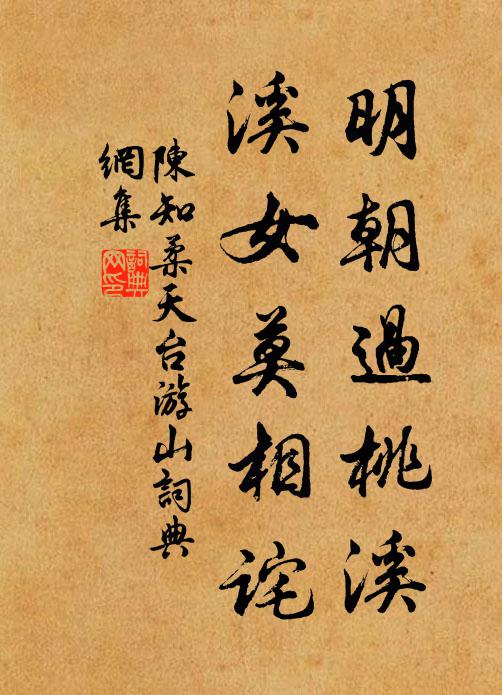 明朝過桃溪
溪女莫相詫
陳知柔天台游山詞典
網集
詞典网印